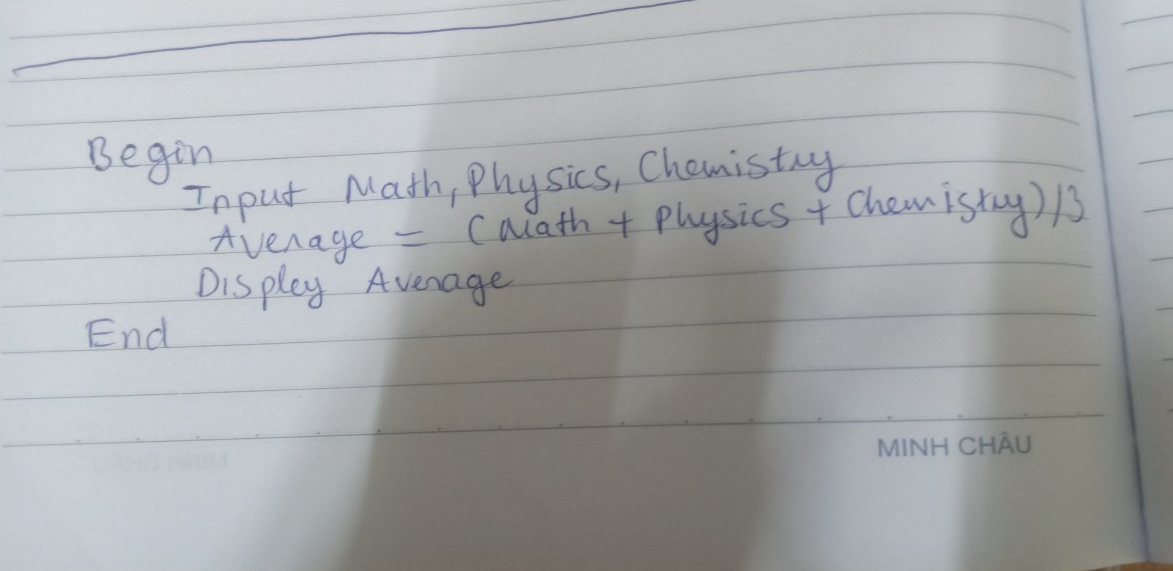 Begin
Input Math, Physics, Chemistry
Average = (Math + Physics + Chemistry)/3
Display Average
End
MINH CHÂU